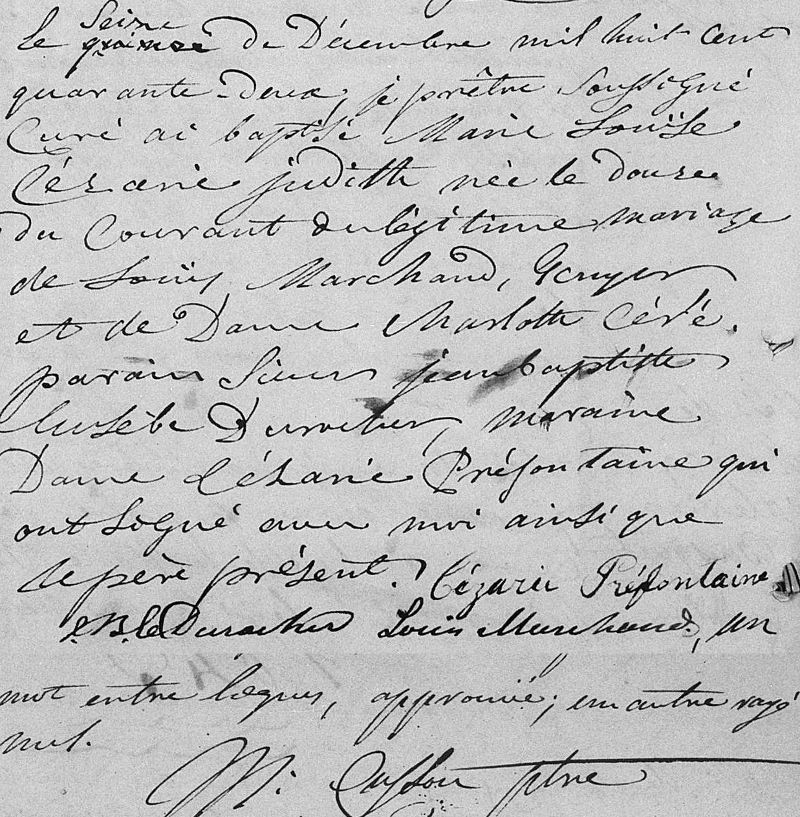 Seize
le quinze de Décembre mil huit cent
quarante-deux, je prêtre Soussigné
Curé ai baptisé Marie Louise
Cézarie judith née le douze
du Courant du légitime mariage
de Louis Marchand, Ecuyer
et de Dame Charlotte Céré.
parain Sieur jean baptiste
Eusèbe Durocher, maraine
Dame Cézarie Préfontaine qui
ont Signé avec moi ainsi que
le père présent. Cézarie Préfontaine
Durocher Louis Marchand, un
mot entre lignes, approuvé; un autre rayé
nul.
ptre